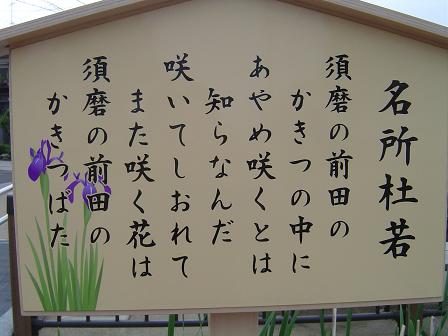 名所杜若
須磨の前田の
かきつの中に
あやめ咲くとは
知らなんだ
咲いてしおれて
また咲く花は
須磨の前田の
かきつばた